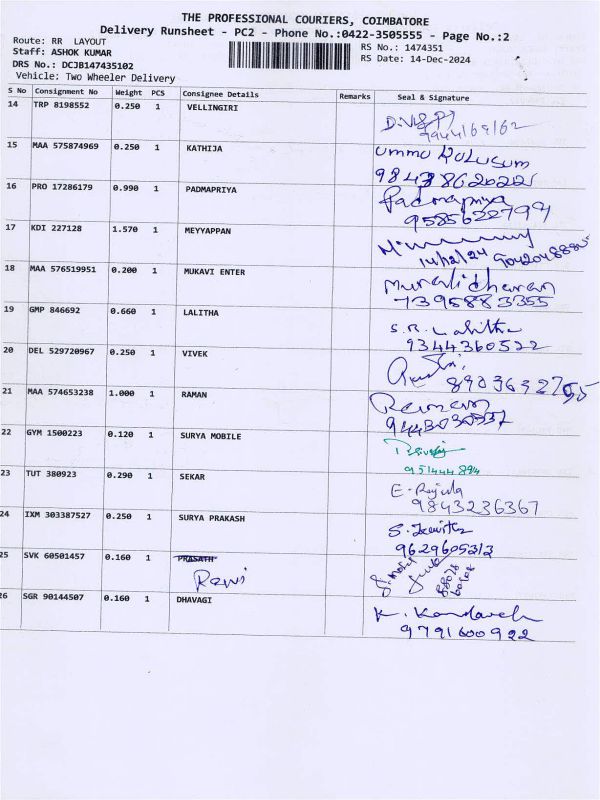 THE PROFESSIONAL COURIERS, COIMBATORE
Delivery Runsheet - PC2 - Phone No.:0422-3505555 - Page No.:2
Route: RR LAYOUT
RS No.: 1474351
Staff: ASHOK KUMAR
RS Date: 14-Dec-2024
DRS No.: DCJB147435102
Vehicle: Two Wheeler Delivery
S No Consignment No Weight PCS Consignee Details Remarks Seal & Signature
14 TRP 8198552 0.250 1 VELLINGIRI
15 MAA 575874969 0.250 1 KATHIJA
Ummu Kulusum
16 PRO 17286179 0.990 1 PADMAPRIYA
Padmapriya
9585622794
17 KDI 227128 1.570 1 MEYYAPPAN
14/12/24
18 MAA 576519951 0.200 1 MUKAVI ENTER
Muralidharan
7395883355
19 GMP 846692 0.660 1 LALITHA
S.R. Lalitha
9344360522
20 DEL 529720967 0.250 1 VIVEK
21 MAA 574653238 1.000 1 RAMAN
Raman
22 GYM 1500223 0.120 1 SURYA MOBILE
23 TUT 380923 0.290 1 SEKAR
9843236367
24 IXM 303387527 0.250 1 SURYA PRAKASH
9629605313
25 SVK 60501457 0.160 1 PRASATH
Ravi
26 SGR 90144507 0.160 1 DHAVAGI
9791600922